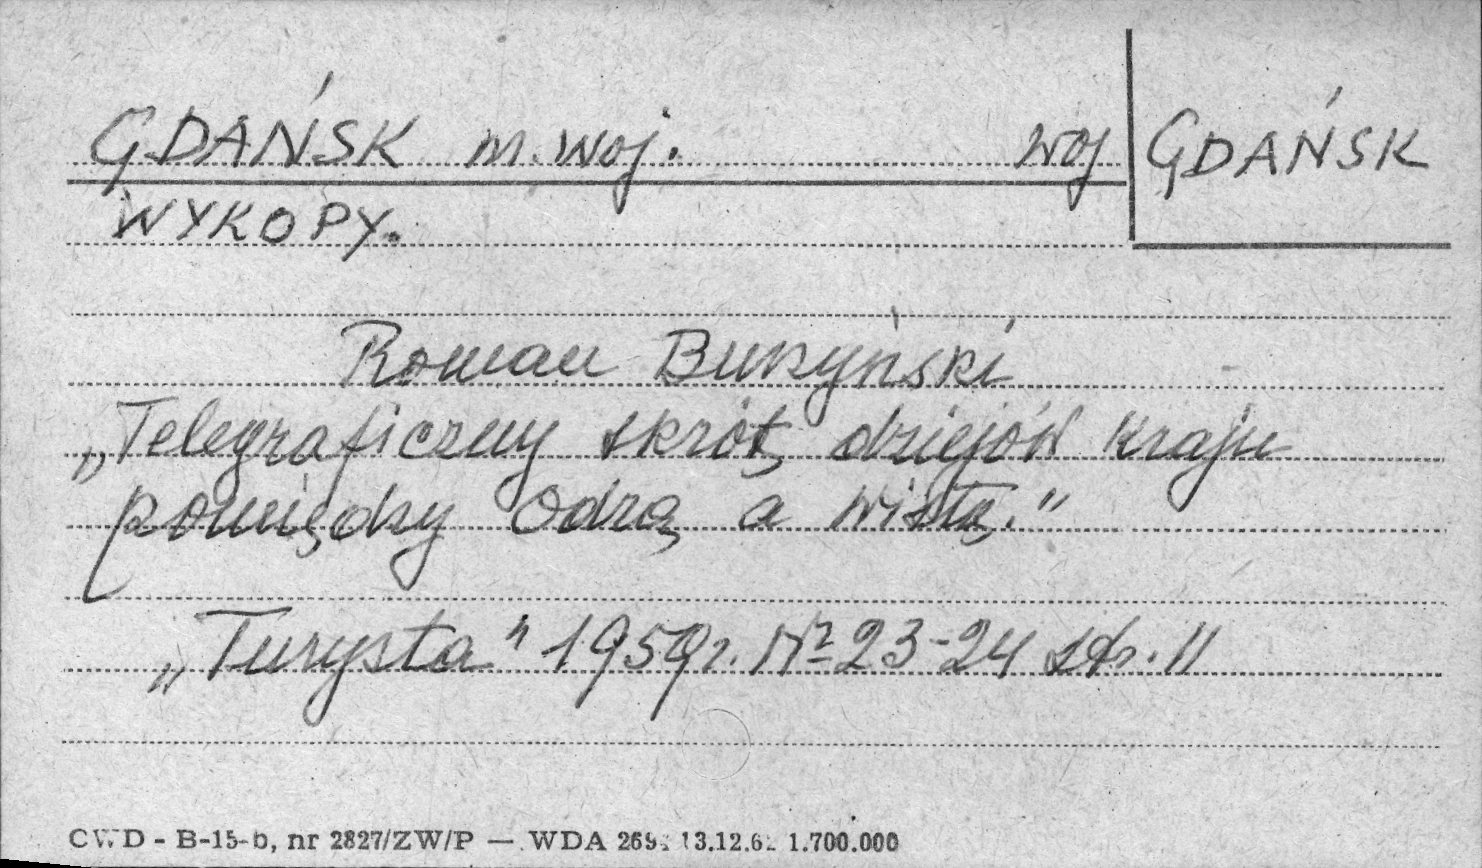 GDAŃSK m. woj. woj GDAŃSK
WYKOPY.
Roman Burzyński
„Telegraficzny skrót dziejów kraju
pomiędzy Odrą a Wisłą."
„Turysta" 1959 r. Nr 23-24 str. 11
CWD - B-15-b, nr 2827/ZW/P — WDA 13.12.6 1.700.000